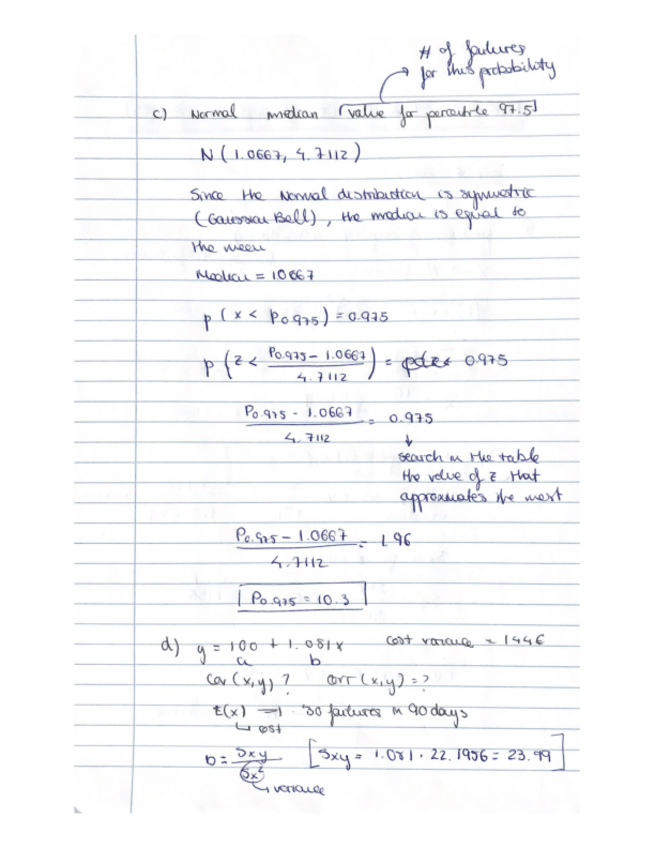 # of failures
for this probability
c) Normal median value for percentile 97.5
N ( 1.0667, 4.7112 )
Since the Normal distribution is symmetric
( Gaussian Bell ) , the median is equal to
the mean
Median = 10667
p ( x < P0.975 ) = 0.975
p ( z < P0.975 - 1.0667 / 4.7112 ) = 0.975
P0.975 - 1.0667 / 4.7112 = 0.975
↓
search in the table
the value of z that
approximates the most
P0.975 - 1.0667 / 4.7112 = 1.96
P0.975 = 10.3
d) y = 100 + 1.081x cost variance = 1446
a b
Cov (x,y) ? Corr (x,y) = ?
E(x) → 30 failures in 90 days
↳ cost
b = Sxy / Sx² [ Sxy = 1.081 · 22.1956 = 23.99 ]
↳ variance